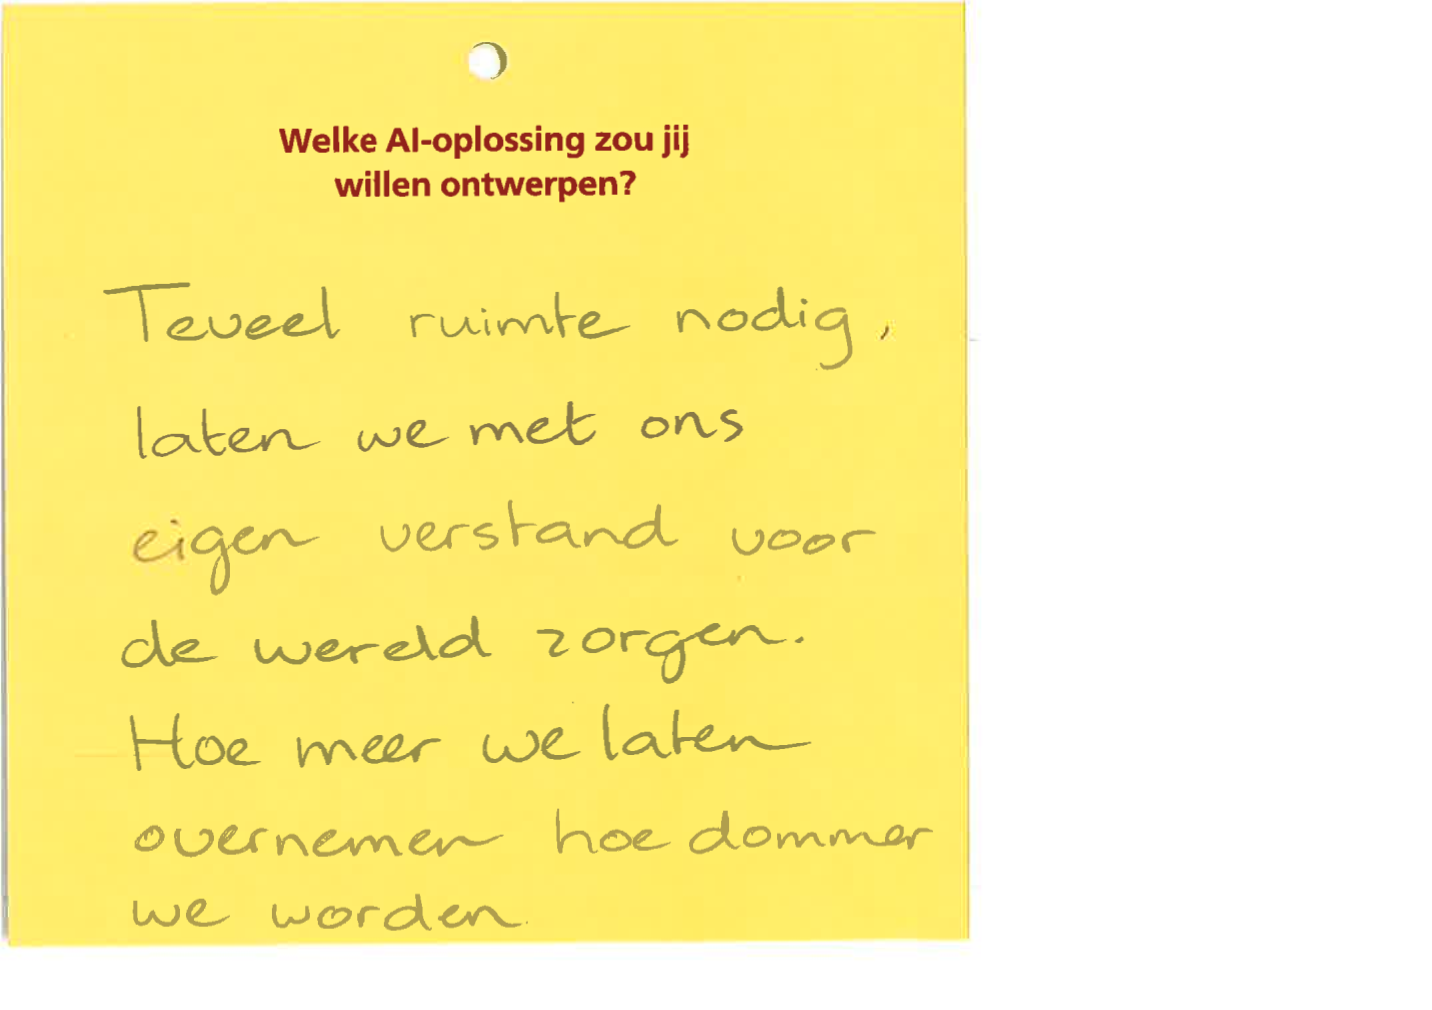 Welke AI-oplossing zou jij
willen ontwerpen?
Teveel ruimte nodig,
laten we met ons
eigen verstand voor
de wereld zorgen.
Hoe meer we laten
overnemen hoe dommer
we worden.